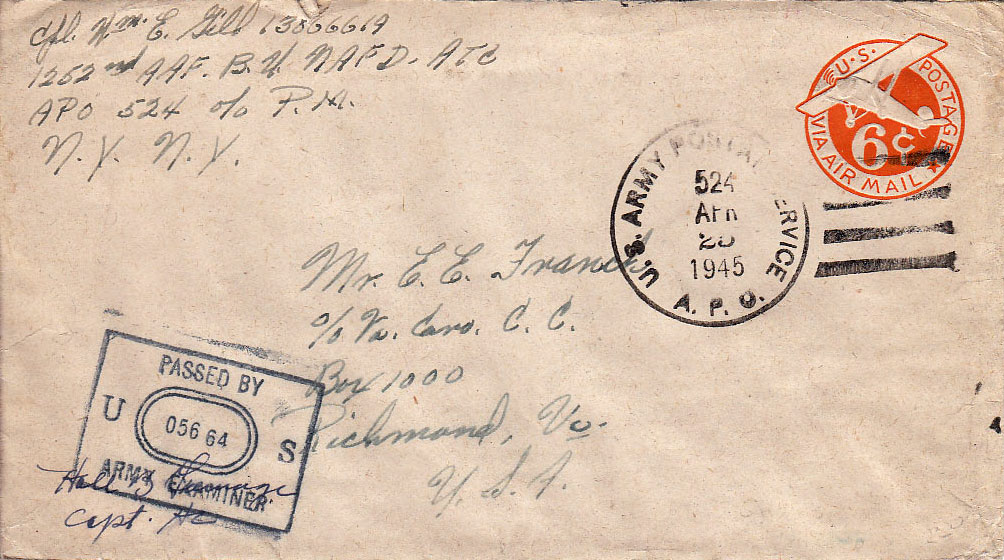 Cpl. Wm. E. Gill 13866619
1252nd AAF. B.U. NAFD. ATC
APO 524 c/o P.M.
N.Y. N.Y.
U.S. POSTAGE
6¢
VIA AIR MAIL
U.S. ARMY POSTAL SERVICE
524
APR
1945
A.P.O.
Mr. E. E. Francis
c/o Va. Caro. C. C.
Box 1000
Richmond, Va.
U.S.A.
PASSED BY
U 056 64 S
ARMY EXAMINER
Hall
Capt. AC